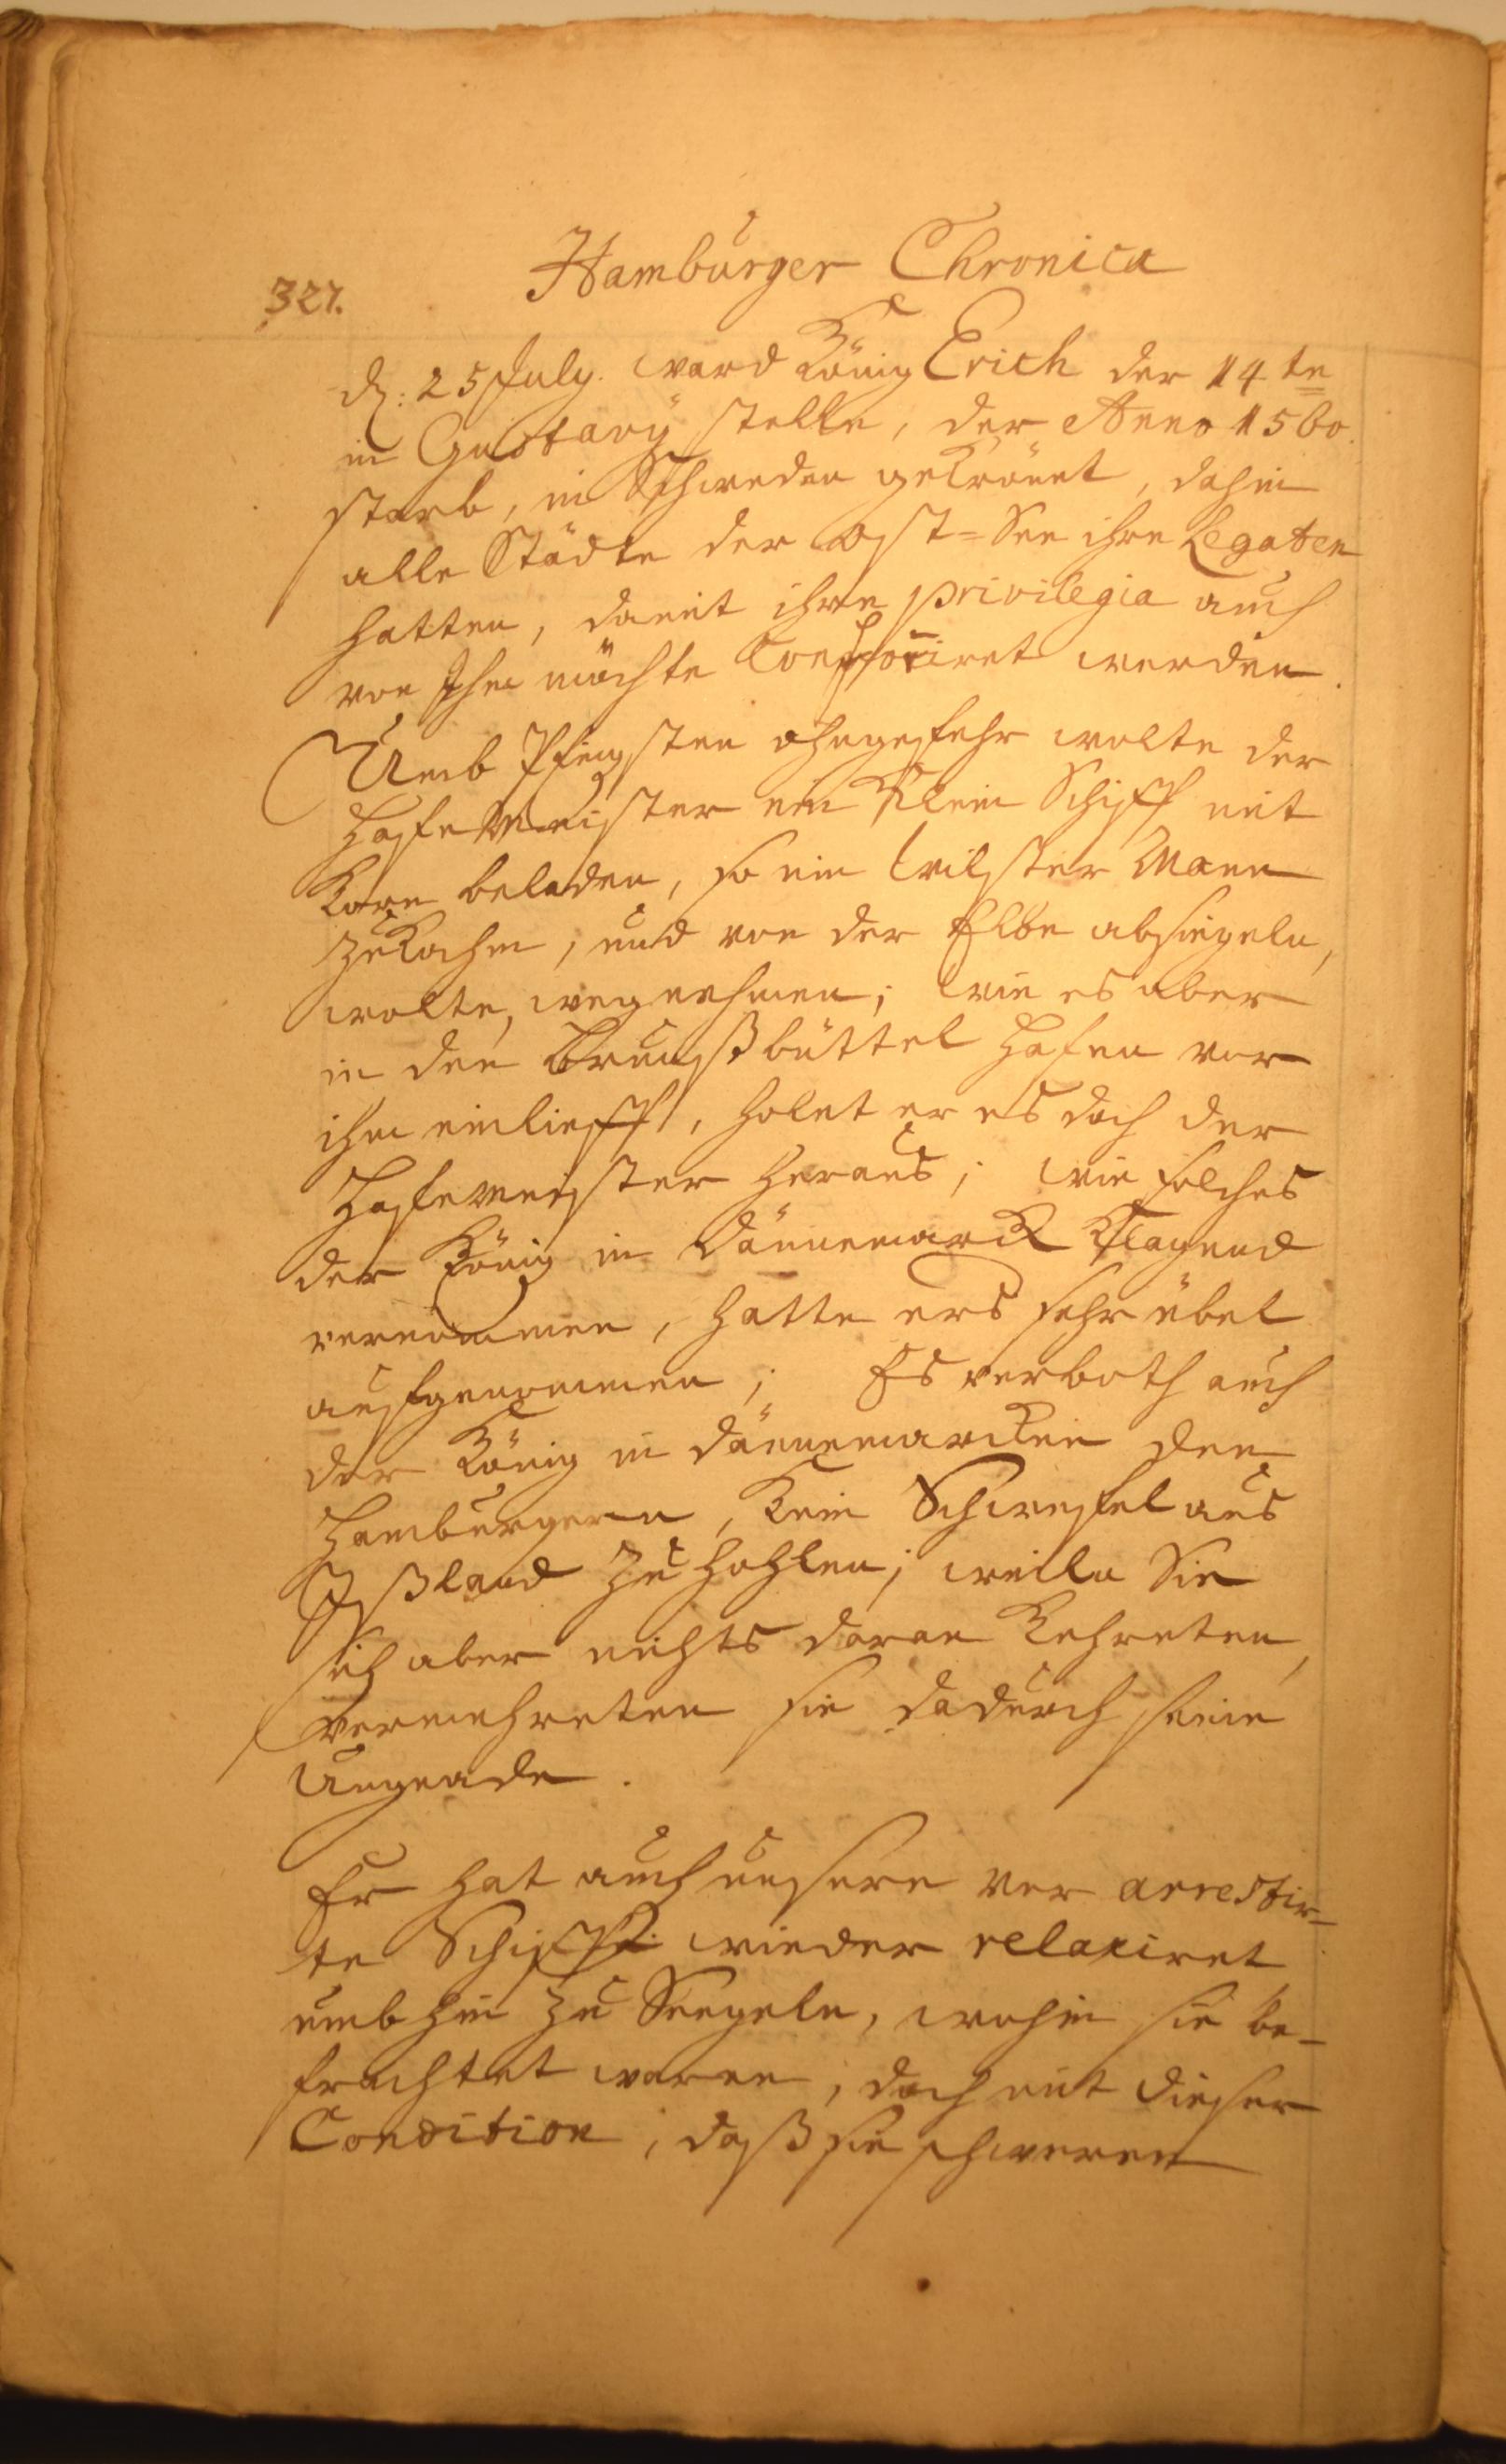 Hamburger Chronica
327.
d: 25 July. ward König Erich der 14te
in Gustavÿ stelle, der Anno 1560.
starb, in Schweden gekrönet, dahin
alle Städte der Ost=See ihre Legaten
hatten, damit ihre privilegia auch
von Ihm möchte werden.
Umb Pfingsten ohngefehr wolte der
Hafemeister ein Klein Schiff mit
Korn beladen, so ein Wilster Mann
zukahm, und von der Elbe absiegeln,
wolte, wegnehmen; wie es aber
in den Brunßbüttel Hafen vor
ihm einlieff, holet er es doch der
Hafemeister heraus; wie solches
der König in Dännemarck Klagend
vernommen, hatte ers sehr übel
aufgenommen; Es verboth auch
der König in Dännemarcken den
Hamburgern, Kein Schwefel aus
Ißland zu hohlen; weiln Sie
sich aber nichts daran Kehreten,
vermehreten sie dadurch seine
Ungnade.
Er hat auch unsere ver arrestir-
te Schiffe wieder relaxiret
umb hin zu Seegeln, wohin sie be-
frachtet waren, doch mit dieser
Condition, daß sie schweren